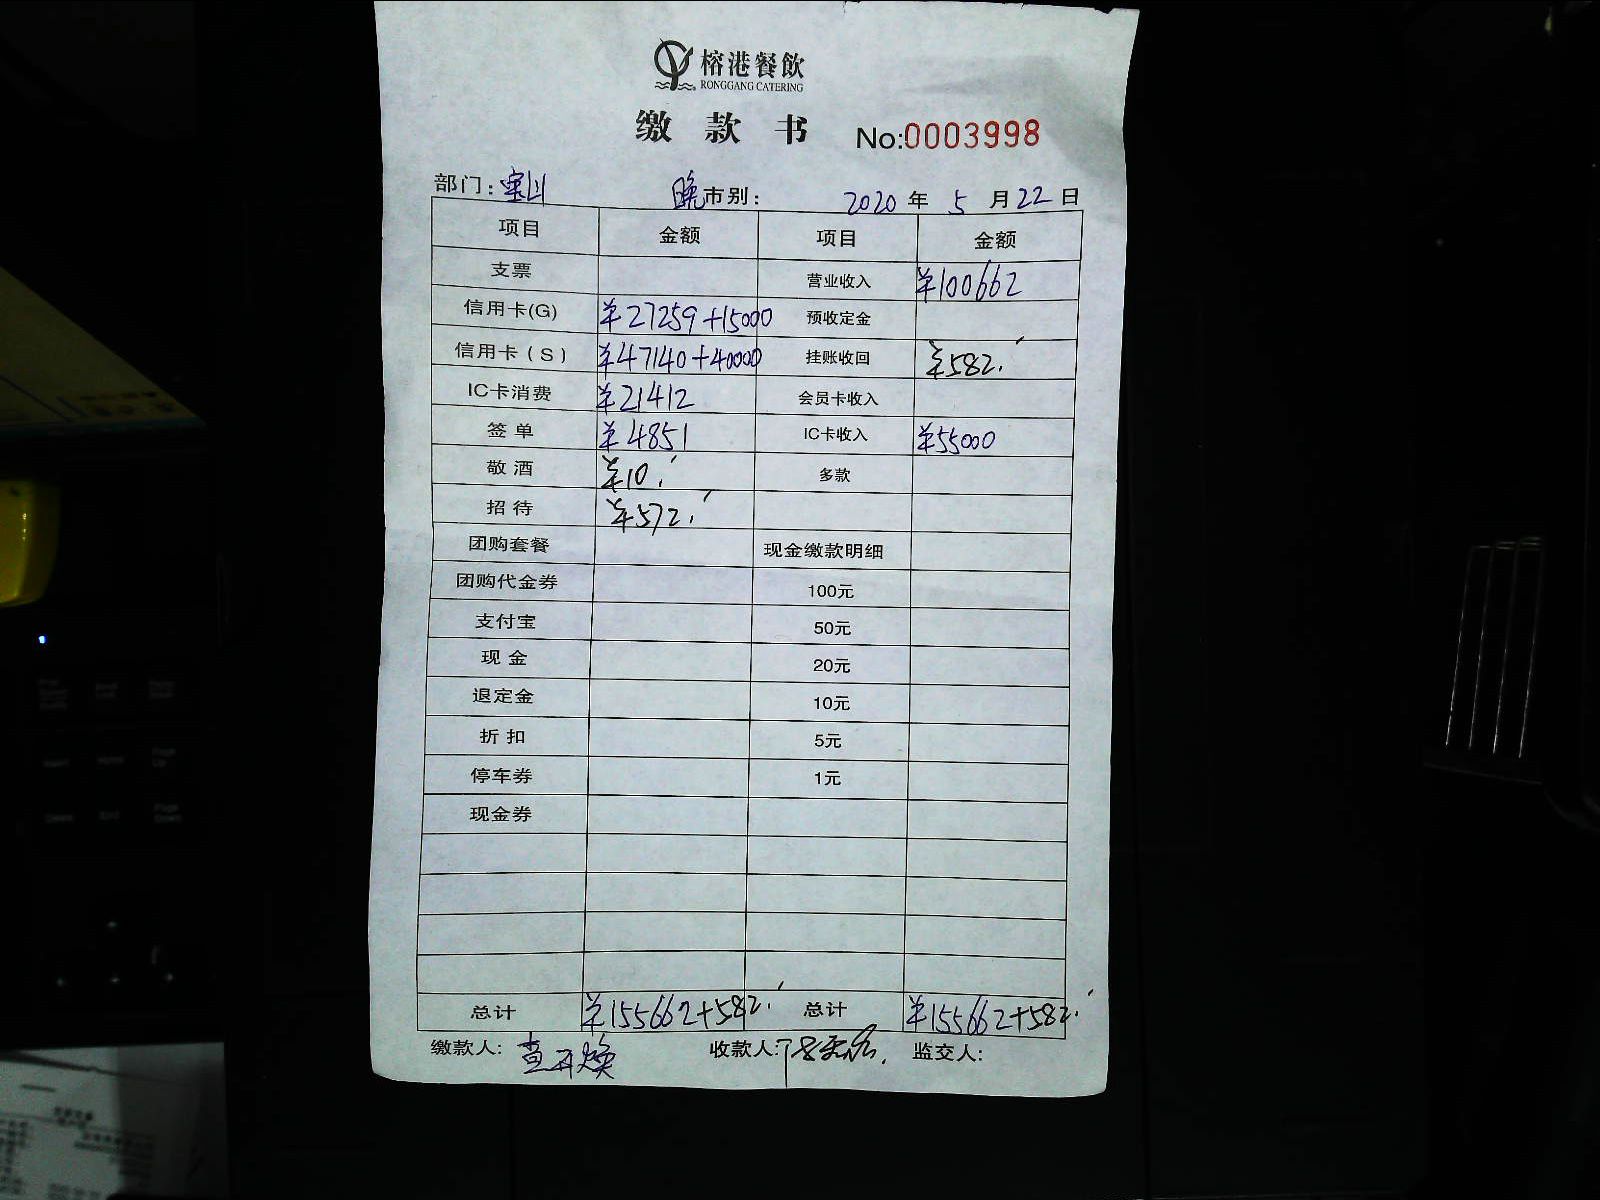 榕港餐飲
RONGGANG CATERING
缴 款 书 No:0003998
部门: 宝川 晚市别: 2020 年 5 月 22 日
项目 金额 项目 金额
支票 营业收入 ¥100662
信用卡(G) ¥27259+15000 预收定金
信用卡(S) ¥47140+40000 挂账收回 ¥582.
IC卡消费 ¥21412 会员卡收入
签 单 ¥4851 IC卡收入 ¥55000
敬 酒 ¥10. 多款
招 待 ¥572.
团购套餐 现金缴款明细
团购代金券 100元
支付宝 50元
现 金 20元
退定金 10元
折 扣 5元
停车券 1元
现金券
总计 ¥155662+582. 总计 ¥155662+582.
缴款人: 查开焕 收款人: 监交人: